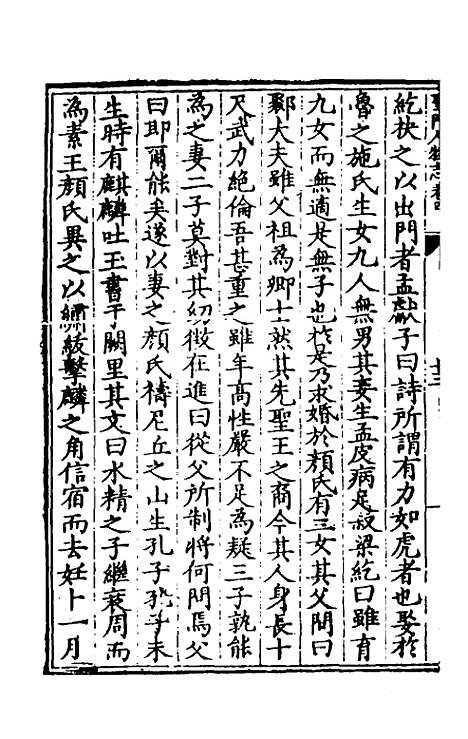 聖門人物志卷四
十三
紇抉之以出門者孟獻子曰詩所謂有力如虎者也娶於
魯之施氏生女九人無男其妾生孟皮病足叔梁紇曰雖有
九女而無適是無子也於是乃求婚於顏氏有三女其父問曰
鄹大夫雖父祖為卿士然其先聖王之裔今其人身長十
尺武力絕倫吾甚重之雖年高性嚴不足為疑三子孰能
為之妻二子莫對其幼徵在進曰從父所制將何問焉父
曰即爾能矣遂以妻之顏氏禱尼丘之山生孔子孔子未
生時有麒麟吐玉書于闕里其文曰水精之子繼衰周而
為素王顏氏異之以繡紱繫麟之角信宿而去妊十一月